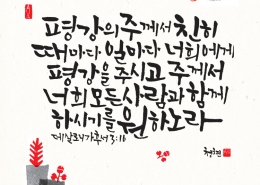 평강의 주께서 친히
때마다 일마다 너희에게
평강을 주시고 주께서
너희 모든 사람과 함께
하시기를 원하노라
데살로니가후서 3:16